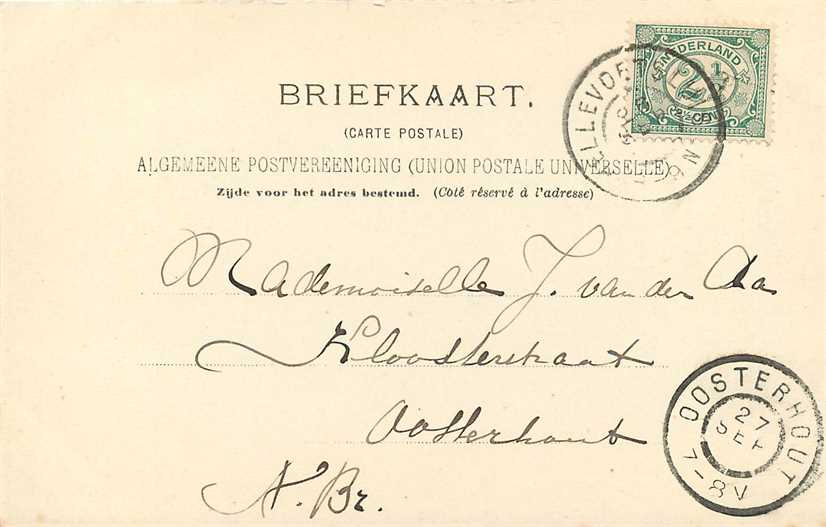 NEDERLAND
2½
2½ CENT
BRIEFKAART.
(CARTE POSTALE)
ALGEMEENE POSTVEREENIGING (UNION POSTALE UNIVERSELLE)
Zijde voor het adres bestemd. (Côté réservé à l'adresse)
Mademoiselle J. van der Aa
Kloosterstraat
Oosterhout
N. Br.
OOSTERHOUT
27
SEP
7-8V